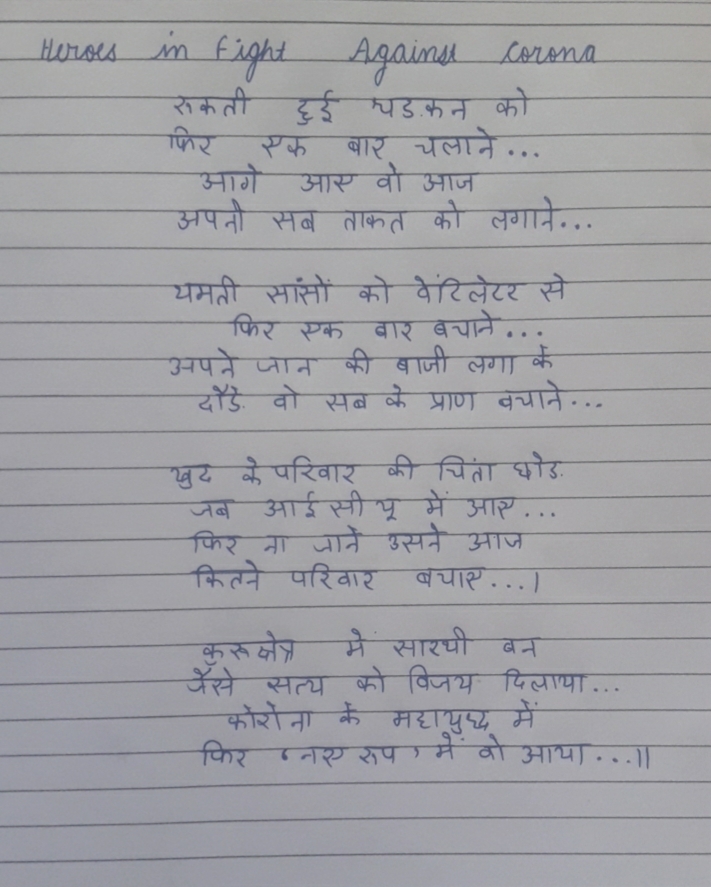 Heroes in Fight Against Corona
रुकती हुई धड़कन को
फिर एक बार चलाने...
आगे आए वो आज
अपनी सब ताकत को लगाने...
थमती सांसों को वेंटिलेटर से
फिर एक बार बचाने...
अपने जान की बाजी लगा के
दौड़े वो सब के प्राण बचाने...
खुद के परिवार की चिंता छोड़
जब आई सी यू में आए...
फिर ना जाने उसने आज
कितने परिवार बचाए...।
कुरुक्षेत्र में सारथी बन
जैसे सत्य को विजय दिलाया...
कोरोना के महायुद्ध में
फिर 'नए रुप' में वो आया...॥